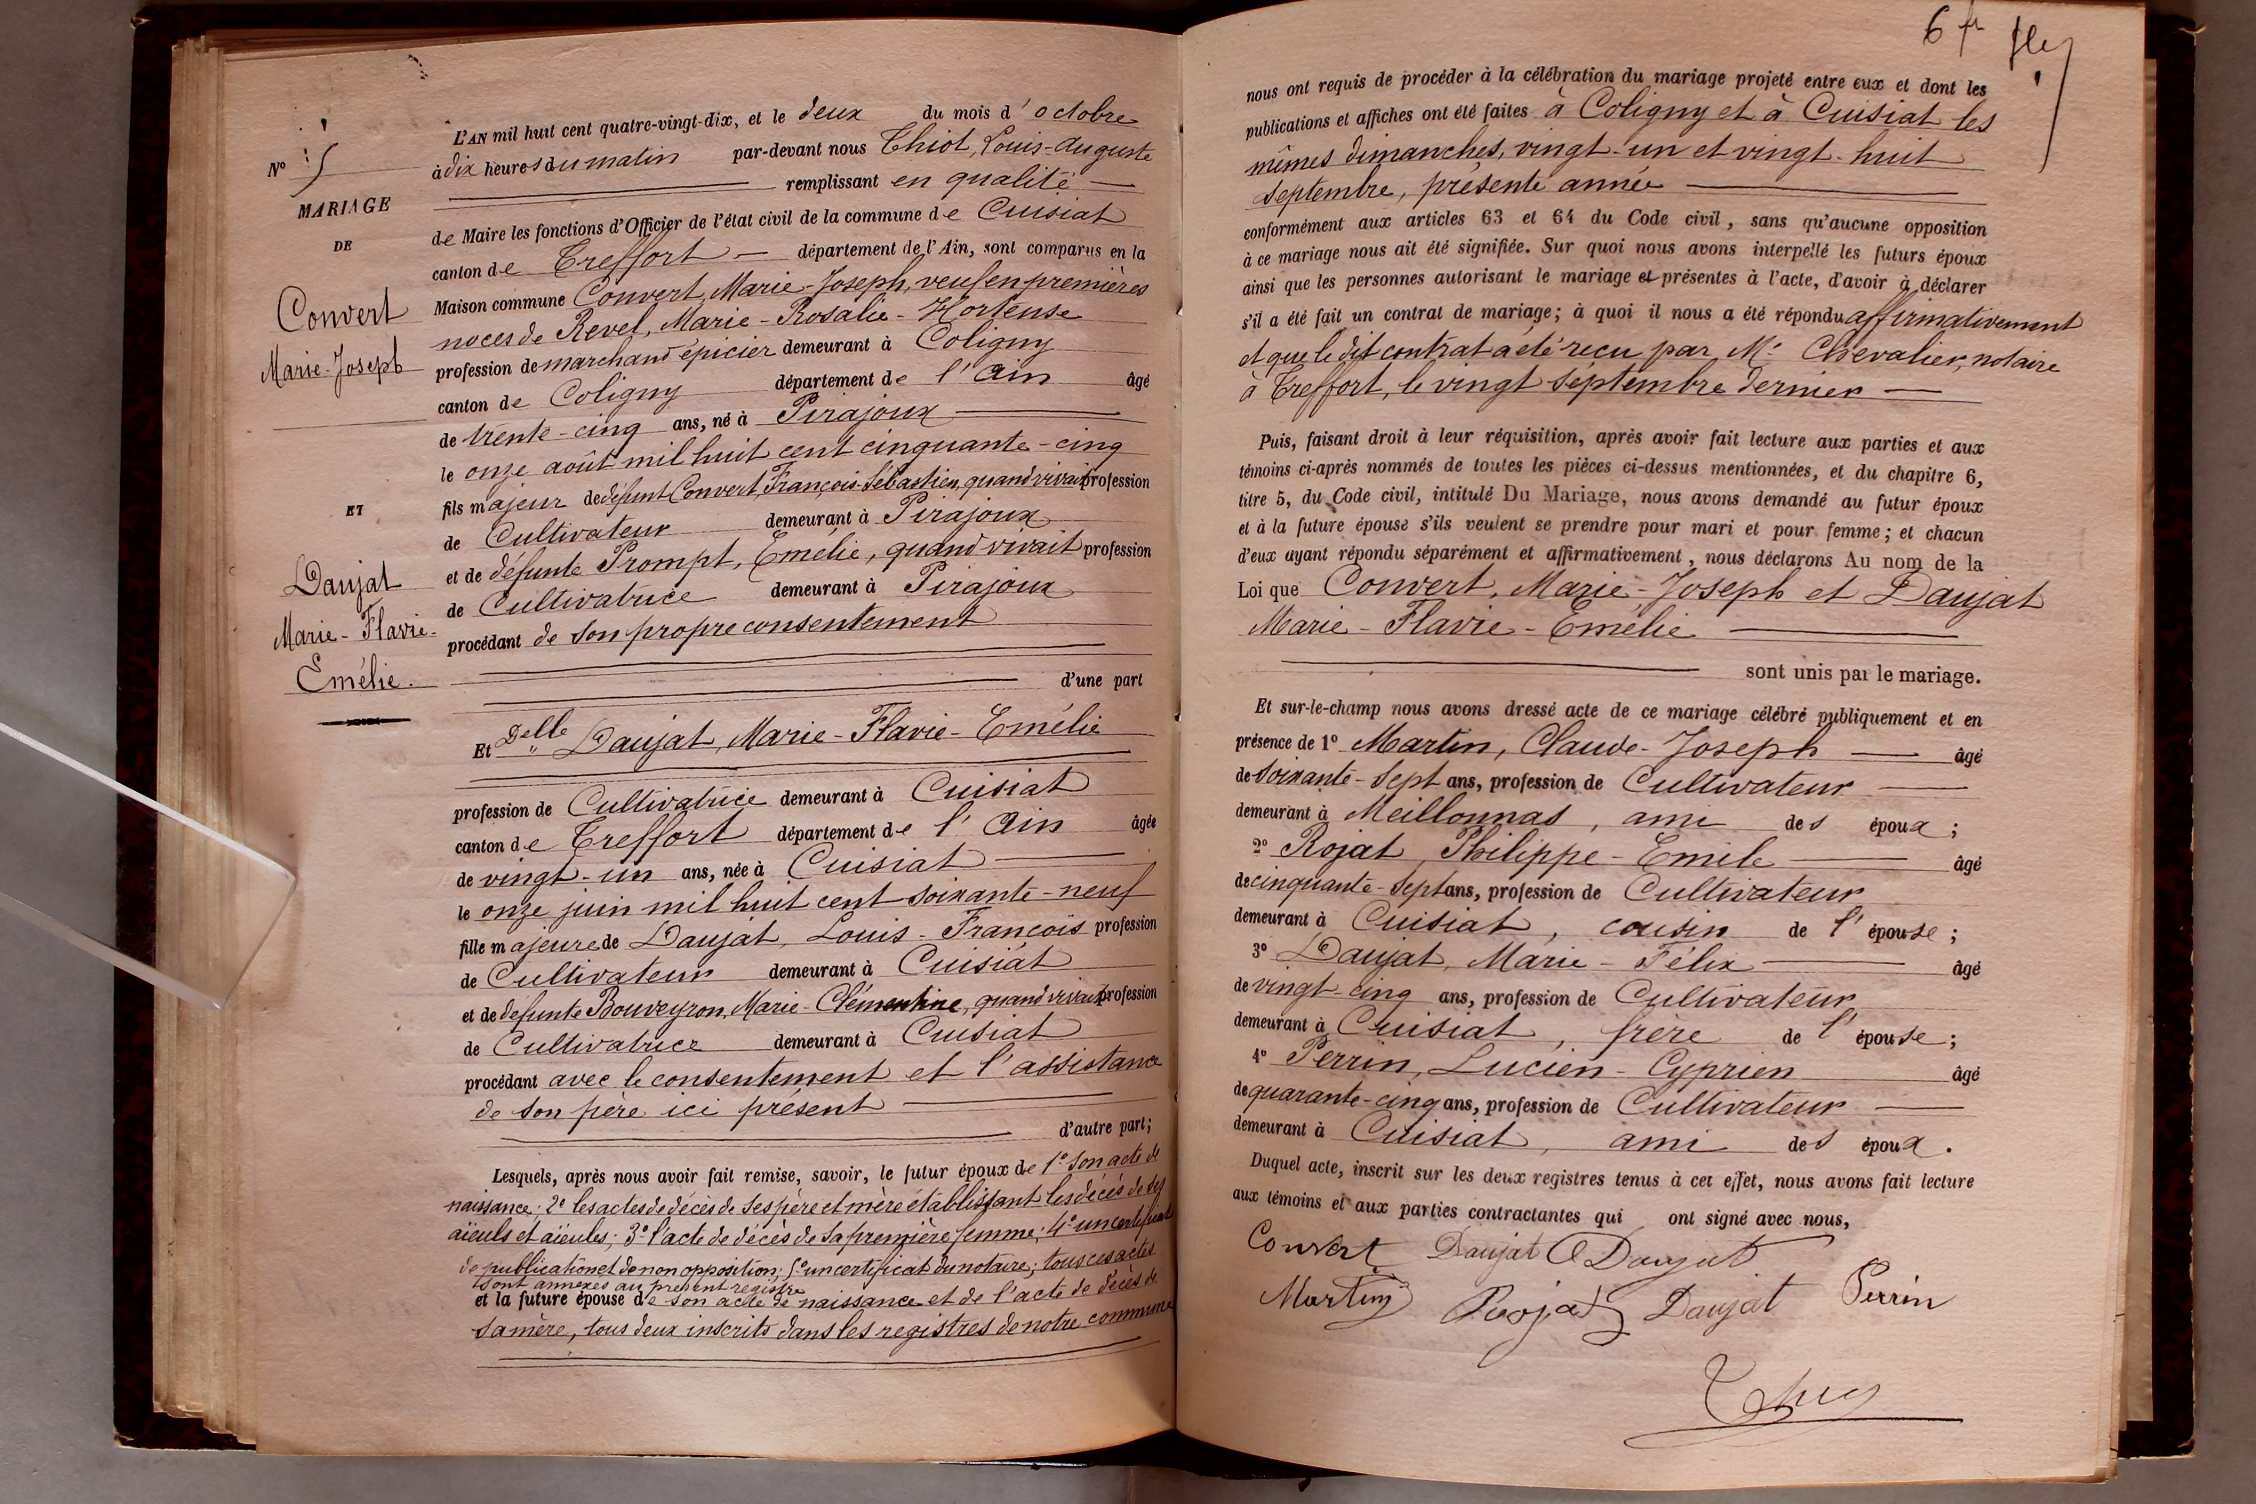 N° 5
MARIAGE
DE
Convert
Marie-Joseph
ET
Daujat
Marie-Flavie-
Emélie.
L'AN mil huit cent quatre-vingt-dix, et le deux du mois d'octobre
à dix heures du matin par-devant nous Thiot, Louis-Auguste
remplissant en qualité
de Maire les fonctions d'Officier de l'état civil de la commune de Cuisiat
canton de Treffort département de l'Ain, sont comparus en la
Maison commune Convert, Marie-Joseph, veuf en premières
noces de Revel, Marie-Rosalie-Hortense
profession de marchand épicier demeurant à Coligny
canton de Coligny département de l'Ain âgé
de trente-cinq ans, né à Pirajoux
le onze août mil huit cent cinquante-cinq
fils majeur de défunt Convert, François-Sébastien, quand vivait profession
de Cultivateur demeurant à Pirajoux
et de défunte Prompt, Emélie, quand vivait profession
de Cultivatrice demeurant à Pirajoux
procédant de son propre consentement
d'une part
Et Delle Daujat, Marie-Flavie-Emélie
profession de Cultivatrice demeurant à Cuisiat
canton de Treffort département de l'Ain âgée
de vingt-un ans, née à Cuisiat
le onze juin mil huit cent soixante-neuf
fille majeure de Daujat, Louis-François profession
de Cultivateur demeurant à Cuisiat
et de défunte Bouveyron, Marie-Clémentine, quand vivait profession
de Cultivatrice demeurant à Cuisiat
procédant avec le consentement et l'assistance
de son père ici présent
d'autre part;
Lesquels, après nous avoir fait remise, savoir, le futur époux de 1° son acte de
naissance; 2° les actes de décès de ses père et mère établissant les décès de ses
aïeuls et aïeules; 3° l'acte de décès de sa première femme; 4° un certificat
de publication et de non opposition; 5° un certificat du notaire; tous ces actes
sont annexés au présent registre
et la future épouse de son acte de naissance et de l'acte de décès de
sa mère, tous deux inscrits dans les registres de notre commune
6 fr
nous ont requis de procéder à la célébration du mariage projeté entre eux et dont les
publications et affiches ont été faites à Coligny et à Cuisiat les
mêmes dimanches, vingt-un et vingt-huit
septembre, présente année
conformément aux articles 63 et 64 du Code civil, sans qu'aucune opposition
à ce mariage nous ait été signifiée. Sur quoi nous avons interpellé les futurs époux
ainsi que les personnes autorisant le mariage et présentes à l'acte, d'avoir à déclarer
s'il a été fait un contrat de mariage; à quoi il nous a été répondu affirmativement
et que le dit contrat a été reçu par Me Chevalier, notaire
à Treffort, le vingt septembre dernier
Puis, faisant droit à leur réquisition, après avoir fait lecture aux parties et aux
témoins ci-après nommés de toutes les pièces ci-dessus mentionnées, et du chapitre 6,
titre 5, du Code civil, intitulé Du Mariage, nous avons demandé au futur époux
et à la future épouse s'ils veulent se prendre pour mari et pour femme; et chacun
d'eux ayant répondu séparément et affirmativement, nous déclarons Au nom de la
Loi que Convert, Marie-Joseph et Daujat
Marie-Flavie-Emélie
sont unis par le mariage.
Et sur-le-champ nous avons dressé acte de ce mariage célébré publiquement et en
présence de 1° Martin, Claude-Joseph âgé
de soixante-sept ans, profession de Cultivateur
demeurant à Meillonnas, ami des époux;
2° Rojat, Philippe-Emile âgé
de cinquante-sept ans, profession de Cultivateur
demeurant à Cuisiat, cousin de l'épouse;
3° Daujat, Marie-Félix âgé
de vingt-cinq ans, profession de Cultivateur
demeurant à Cuisiat, frère de l'épouse;
4° Perrin, Lucien-Cyprien âgé
de quarante-cinq ans, profession de Cultivateur
demeurant à Cuisiat, ami des époux.
Duquel acte, inscrit sur les deux registres tenus à cet effet, nous avons fait lecture
aux témoins et aux parties contractantes qui ont signé avec nous,
Convert Daujat Daujat
Martin Rojat Daujat Perrin